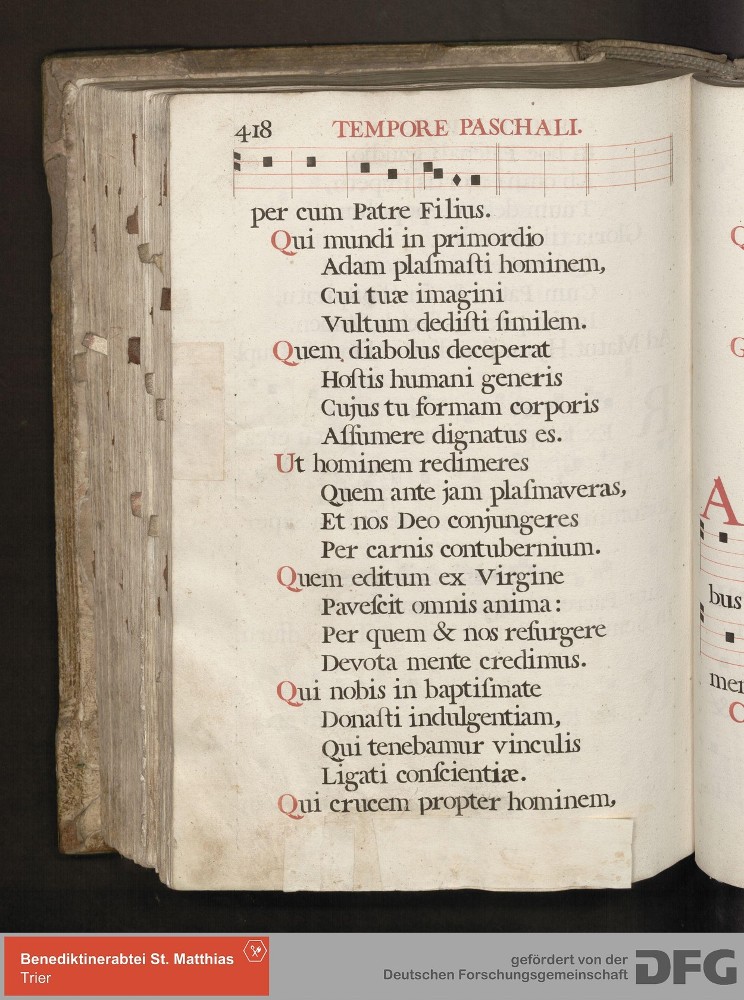 418 TEMPORE PASCHALI.
per cum Patre Filius.
Qui mundi in primordio
Adam plaſmaſti hominem,
Cui tuæ imagini
Vultum dediſti ſimilem.
Quem diabolus deceperat
Hoſtis humani generis
Cujus tu formam corporis
Aſſumere dignatus es.
Ut hominem redimeres
Quem ante jam plaſmaveras,
Et nos Deo conjungeres
Per carnis contubernium.
Quem editum ex Virgine
Paveſcit omnis anima:
Per quem & nos reſurgere
Devota mente credimus.
Qui nobis in baptiſmate
Donaſti indulgentiam,
Qui tenebamur vinculis
Ligati conſcientiæ.
Qui crucem propter hominem,
A
bus
Benediktinerabtei St. Matthias
Trier
gefördert von der
Deutschen Forschungsgemeinschaft
DFG